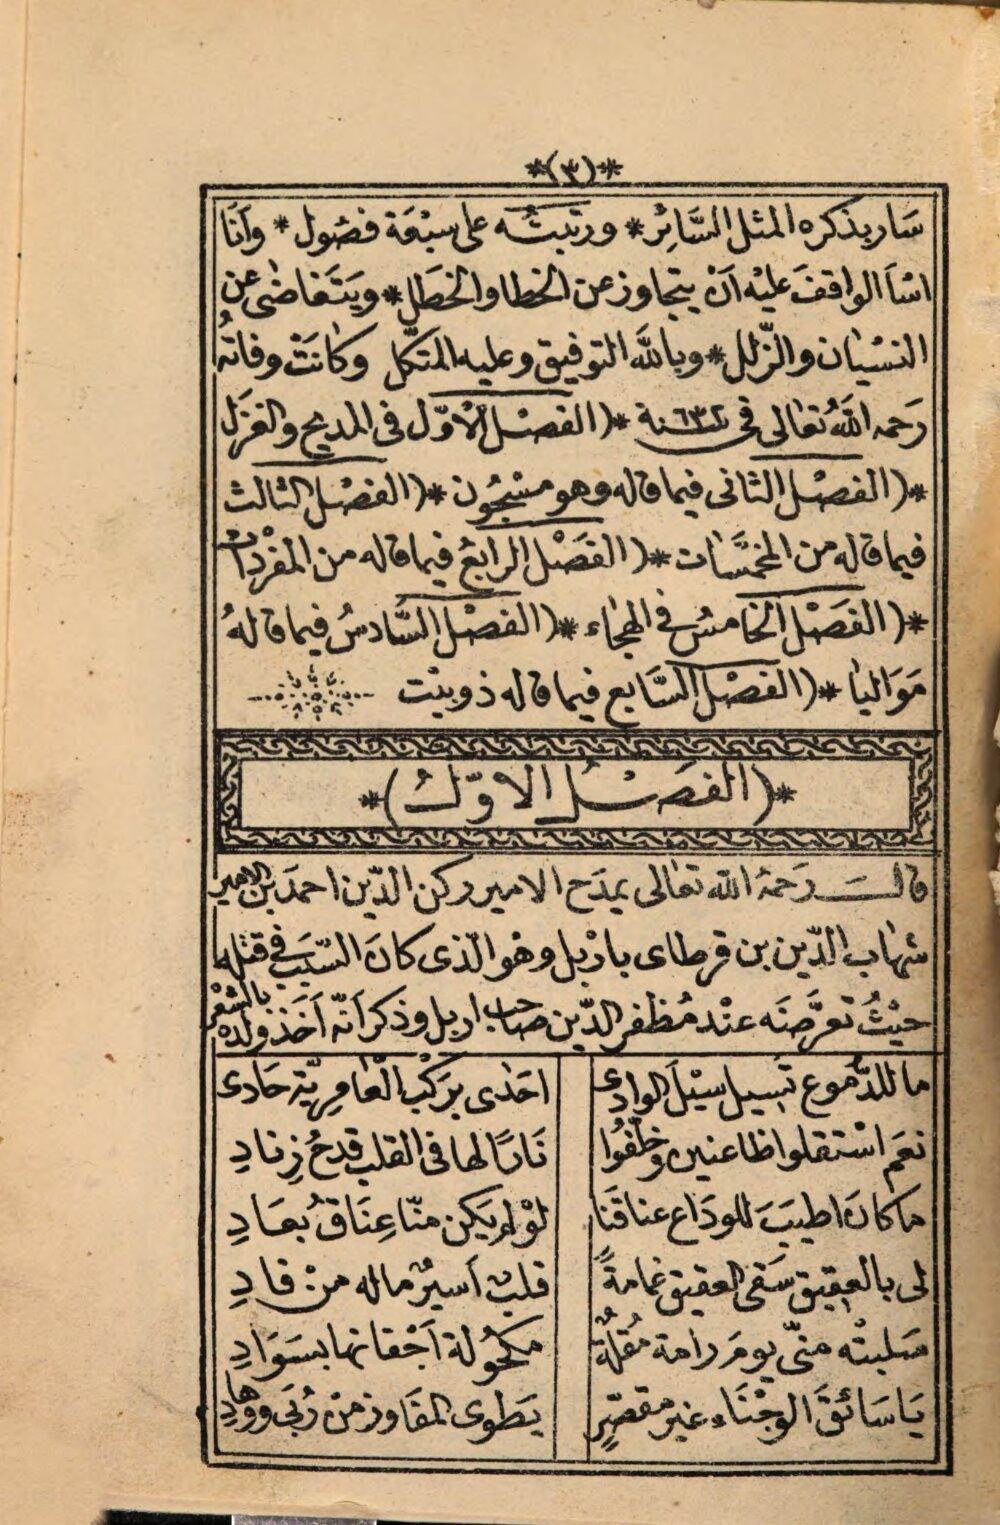 *(٣)*
سَار بذكره المثل السَّائِر * ورتبتُه على سبْعَة فصُول * وَانَا
اسْأَ الواقفَ عليْه اَنْ يتجاوز عن الخطا والخطَل * ويَتَغاضى عن
النسْيان والزّلل * وباللَّه التوفيق وعليه المتكّل وكانَتْ وفاتهُ
رَحمه اللهُ تعالى فى سنة ٦٣٢ *( الفصْل الْاوّل فى المديح والغزَل
*( الفصْل الثانى فيما قاله وهو مسْجُون *( الفصْل الثالث
فيما قاله من المخمَّسَات *( الفَصْل الرابعُ فيما قاله من المفْردَات
*( الفَصْل الخامسُ فى الهجَاء *( الفصْل السَّادسُ فيما قالهُ
مَوَاليَا *( الفصْل السَّابع فيما قاله ذوبيْت
*( الفصْل الاوّل )*
قالـــ رَحمهُ الله تعَالى يمدَح الامير ركن الدّين احمدَ بن الامير
شهَاب الدّين بن قرطاى باربْل وهْو الّذى كانَ السّبَب فى قتْله
حيْثُ تعرَّضَه عنْد مُظفر الدّين صاحب اربل وذكر اَنّه اَخَذ ولده بالشعْر
ما للدُّموع تَسيل سيْلَ الوادِى    احَدَى برَكْب الْعَامِريّة حَادى
نعَم اسْتقلوا ظاعنين وخلّفُوا    نَارًا لها فى القلب قدحُ زِنادِ
ما كانَ اطيَبَ للودَاع عناقنَا    لوْ لم يَكن منّا عِنَاقُ بعَادِ
لى بالعقيق سَقى العقيق غمامةٌ    قلبٌ اَسيرٌ ماله منْ فادِ
سَلبتْه منّى يومَ رامة مُقلةٌ    مكحُولة اَجْفانها بسَوَادِ
يَا سَائقَ الوجْنَاء غير مقصّرٍ    يَطوى المفَاوز منْ رُبى ووهادِ